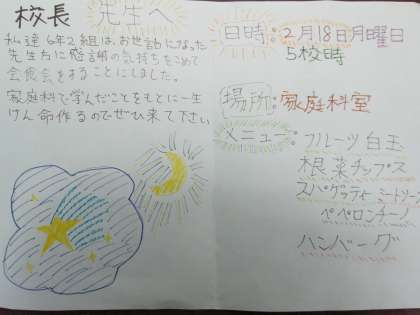 校長先生へ
私達6年2組は、お世話になった
先生方に感謝の気持ちをこめて
会食会をすることにしました。
家庭科で学んだことをもとに一生
けん命作るのでぜひ来て下さい
日時:2月18日月曜日
5校時
場所:家庭科室
メニュー:フルーツ白玉
根菜チップス
スパゲッティーミートソース
ペペロンチーノ
ハンバーグ